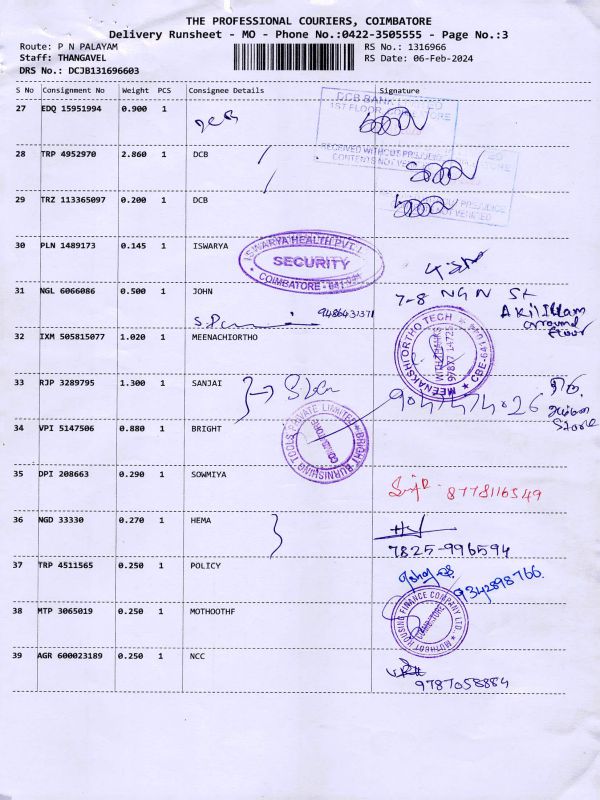 THE PROFESSIONAL COURIERS, COIMBATORE
Delivery Runsheet - MO - Phone No.:0422-3505555 - Page No.:3
Route: P N PALAYAM
Staff: THANGAVEL
DRS No.: DCJB131696603
RS No.: 1316966
RS Date: 06-Feb-2024
S No Consignment No Weight PCS Consignee Details Signature
27 EDQ 15951994 0.900 1 DCB
DCB BANK LIMITED
1ST FLOOR
28 TRP 4952970 2.860 1 DCB
RECEIVED WITHOUT PREJUDICE
CONTENTS NOT VERIFIED
29 TRZ 113365097 0.200 1 DCB
30 PLN 1489173 0.145 1 ISWARYA
ISWARYA HEALTH PVT. L
SECURITY
COIMBATORE - 641 041
31 NGL 6066086 0.500 1 JOHN
7-8 NGN St
Akil Illam
ground
floor
9486431371
32 IXM 505815077 1.020 1 MEENACHIORTHO
MEENAKSHI ORTHO TECH
WITH THANKS
33 RJP 3289795 1.300 1 SANJAI
34 VPI 5147506 0.880 1 BRIGHT
BRIGHT BURNISHING TOOLS PRIVATE LIMITED
Store
35 DPI 208663 0.290 1 SOWMIYA
8778116549
36 NGD 33330 0.270 1 HEMA
7825-996594
37 TRP 4511565 0.250 1 POLICY
9342898766
38 MTP 3065019 0.250 1 MOTHOOTHF
MUTHOOT HOUSING FINANCE COMPANY LTD.
COIMBATORE
39 AGR 600023189 0.250 1 NCC
9787058884